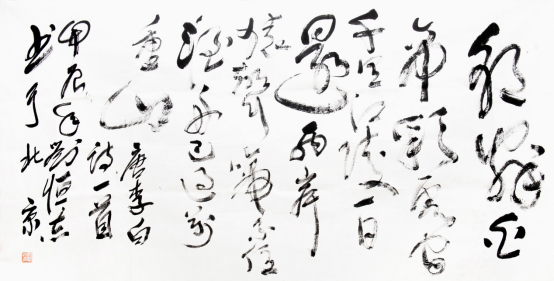 朝辭白
帝彩雲間
千里江陵一日
還兩岸
猿聲啼不住
輕舟已過萬
重山
唐李白
詩一首
甲辰年劉恒
书于北京